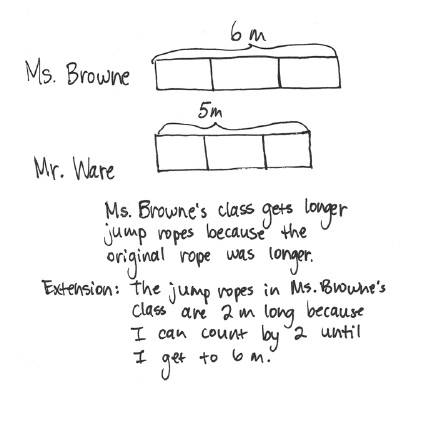 6 m
Ms. Browne
5m
Mr. Ware
Ms. Browne's class gets longer
jump ropes because the
original rope was longer.
Extension: The jump ropes in Ms. Browne's
class are 2 m long because
I can count by 2 until
I get to 6 m.